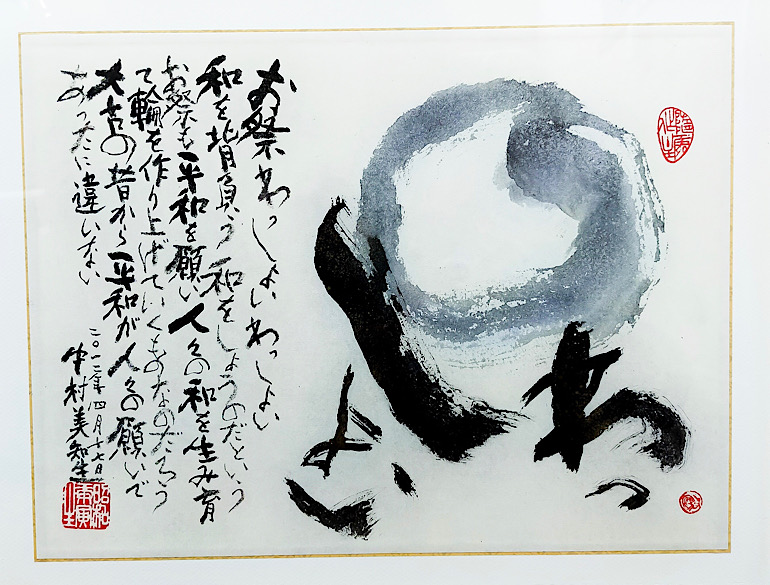 わっしょい
お祭わっしょいわっしょい
和を背負う 和をしょうのだという
お祭も平和を願い人々の和を生み育
て輪を作り上げていくものなのだろう
太古の昔から平和が人々の願いで
あったに違いない
二〇一二年四月十七日
中村美知生